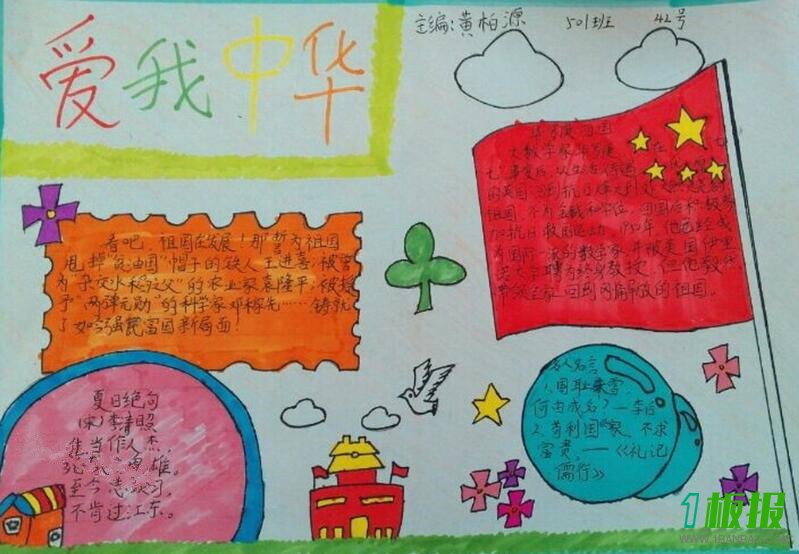 爱我中华
主编:黄柏源 501班 42号
看吧,祖国在发展!那誓为祖国
甩掉"贫油国"帽子的铁人王进喜;被誉
为"杂交水稻之父"的农业家袁隆平;被授
予"两弹元勋"的科学家邓稼先……铸就
了如今强民富国新局面!
华罗庚 祖国
大数学家华罗庚 在
七 事变后,以生活
的英国 回到抗日烽火
祖国,不为金钱和 位,回国后积极参
加抗日救国运动 1950年,他已经成
为国际一流的数学家,并被美国伊里
大学聘为终身教授,但他毅然
带领全家回到 解放的祖国。
夏日绝句
(宋)李清照
当作人杰,
死 雄。
至今思 ,
不肯过江东。
名人名言
1.国耻未雪,
何由成名?—李白
2.苟利国家,不求
富贵,—《礼记
儒行》
1板报
WWW.1BANBAO.COM